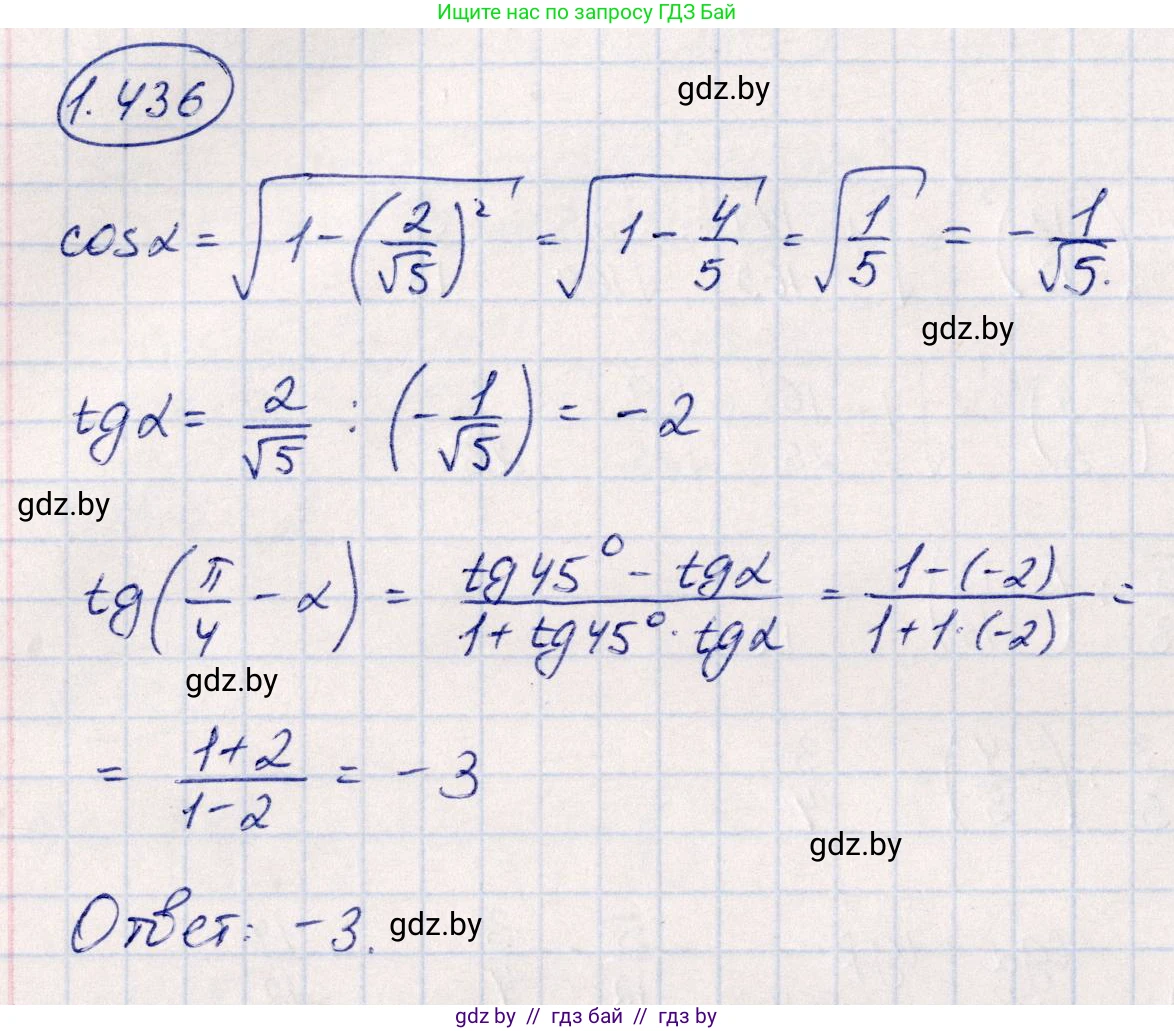 Ищите нас по запросу ГДЗ Бай
1.436
gdz.by
cosα = √(1-(2/√5)²) = √(1-4/5) = √(1/5) = -1/√5.
gdz.by
tgα = 2/√5 : (-1/√5) = -2
gdz.by
tg(π/4 - α) = (tg45° - tgα)/(1 + tg45° · tgα) = (1-(-2))/(1+1·(-2)) =
gdz.by
= (1+2)/(1-2) = -3
gdz.by
Ответ: -3. gdz.by
gdz.by // гдз бай // гдз by